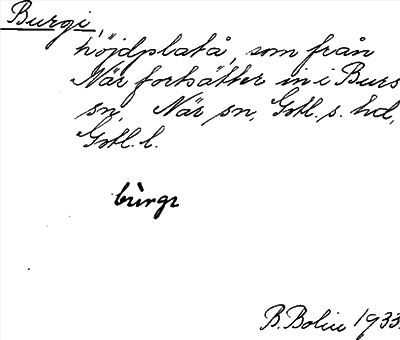 Burgi,
höjdplatå, som från
När fortsätter in i Burs
sn. När sn, Gotl. s. hd,
Gotl. l.
bùrgɩ
B. Bolin 1933.